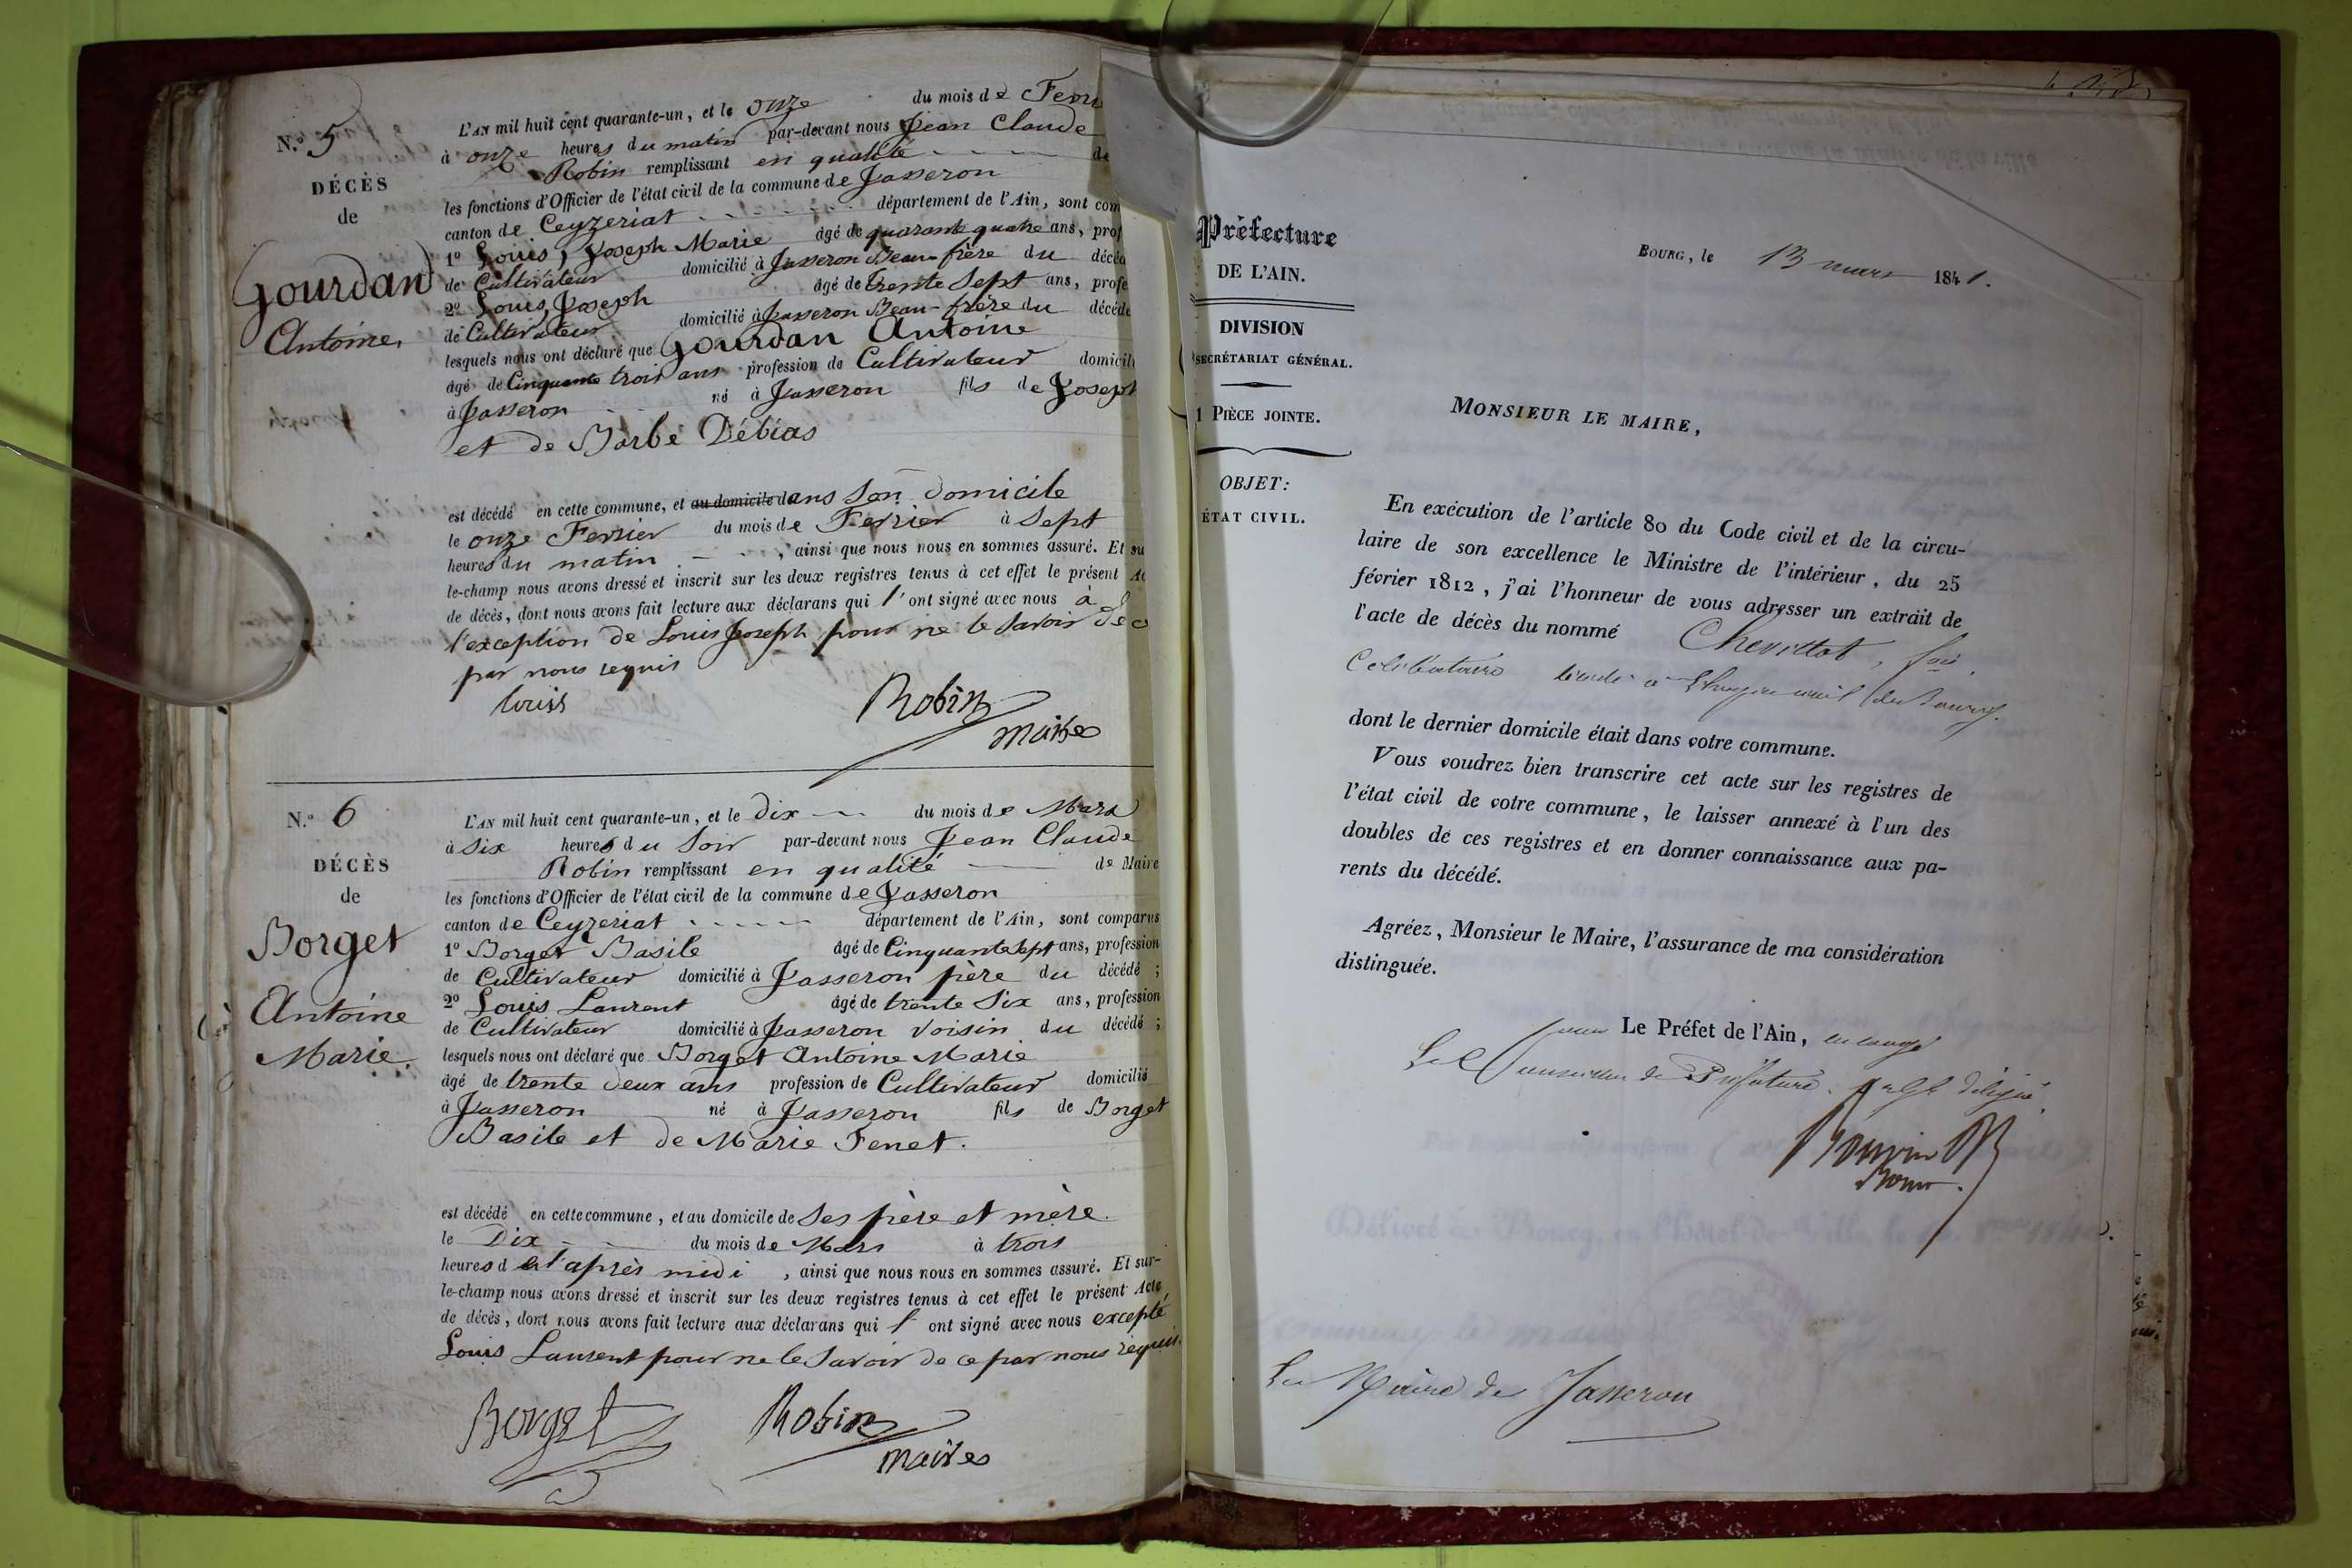 N.º 5
DÉCÈS
de
Gourdan
Antoine.
L'AN mil huit cent quarante-un, et le onze du mois de
à onze heures du matin par-devant nous Jean Claude
Robin remplissant en qualité de
les fonctions d'Officier de l'état civil de la commune de Jasseron
canton de Ceyzeriat département de l'Ain, sont com
1º Louis, Joseph Marie âgé de quarante quatre ans, prof
de Cultivateur domicilié à Jasseron Beau-frère du décéd
2º Louis, Joseph âgé de trente Sept ans, profe
de Cultivateur domicilié à Jasseron Beau-frère du décédé
lesquels nous ont déclaré que Gourdan Antoine
âgé de Cinquante trois ans profession de Cultivateur domicili
à Jasseron né à Jasseron fils de Joseph
et de Barbe Débias
est décédé en cette commune, et au domicile dans Son domicile
le onze Fevrier du mois de Fevrier à Sept
heures du matin, ainsi que nous nous en sommes assuré. Et su
le-champ nous avons dressé et inscrit sur les deux registres tenus à cet effet le présent Ac
de décès, dont nous avons fait lecture aux déclarans qui l'ont signé avec nous à
l'exception de Louis Joseph pour ne le Savoir de c
par nous requis
Louis Robin
maire
N.º 6
DÉCÈS
de
Borget
Antoine
Marie.
L'AN mil huit cent quarante-un, et le Dix du mois de Mars
à Six heures du Soir par-devant nous Jean Claude
Robin remplissant en qualité de Maire
les fonctions d'Officier de l'état civil de la commune de Jasseron
canton de Ceyzeriat département de l'Ain, sont comparus
1º Borget Basile âgé de Cinquante Sept ans, profession
de Cultivateur domicilié à Jasseron père du décédé ;
2º Louis Laurent âgé de trente Six ans, profession
de Cultivateur domicilié à Jasseron voisin du décédé ;
lesquels nous ont déclaré que Borget Antoine Marie
âgé de trente deux ans profession de Cultivateur domicilié
à Jasseron né à Jasseron fils de Borget
Basile et de Marie Fenet.
est décédé en cette commune, et au domicile de Ses père et mère.
le Dix du mois de Mars à trois
heures de l'après midi, ainsi que nous nous en sommes assuré. Et sur-
le-champ nous avons dressé et inscrit sur les deux registres tenus à cet effet le présent Acte
de décès, dont nous avons fait lecture aux déclarans qui l'ont signé avec nous excepté
Louis Laurent pour ne le Savoir de ce par nous requis.
Borget Robin
maire
Préfecture
DE L'AIN.
DIVISION
SECRÉTARIAT GÉNÉRAL.
1 PIÈCE JOINTE.
OBJET:
ÉTAT CIVIL.
BOURG, le 13 mars 1841.
MONSIEUR LE MAIRE,
En exécution de l'article 80 du Code civil et de la circu-
laire de son excellence le Ministre de l'intérieur, du 25
février 1812, j'ai l'honneur de vous adresser un extrait de
l'acte de décès du nommé Chevillat,
Celibataire
dont le dernier domicile était dans votre commune.
Vous voudrez bien transcrire cet acte sur les registres de
l'état civil de votre commune, le laisser annexé à l'un des
doubles de ces registres et en donner connaissance aux pa-
rents du décédé.
Agréez, Monsieur le Maire, l'assurance de ma considération
distinguée.
pour Le Préfet de l'Ain, en congé
Le Conseiller de Préfecture délégué
Le Maire de Jasseron